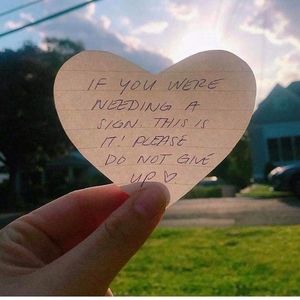 IF YOU WERE
NEEDING A
SIGN. THIS IS
IT! PLEASE
DO NOT GIVE
UP ♡